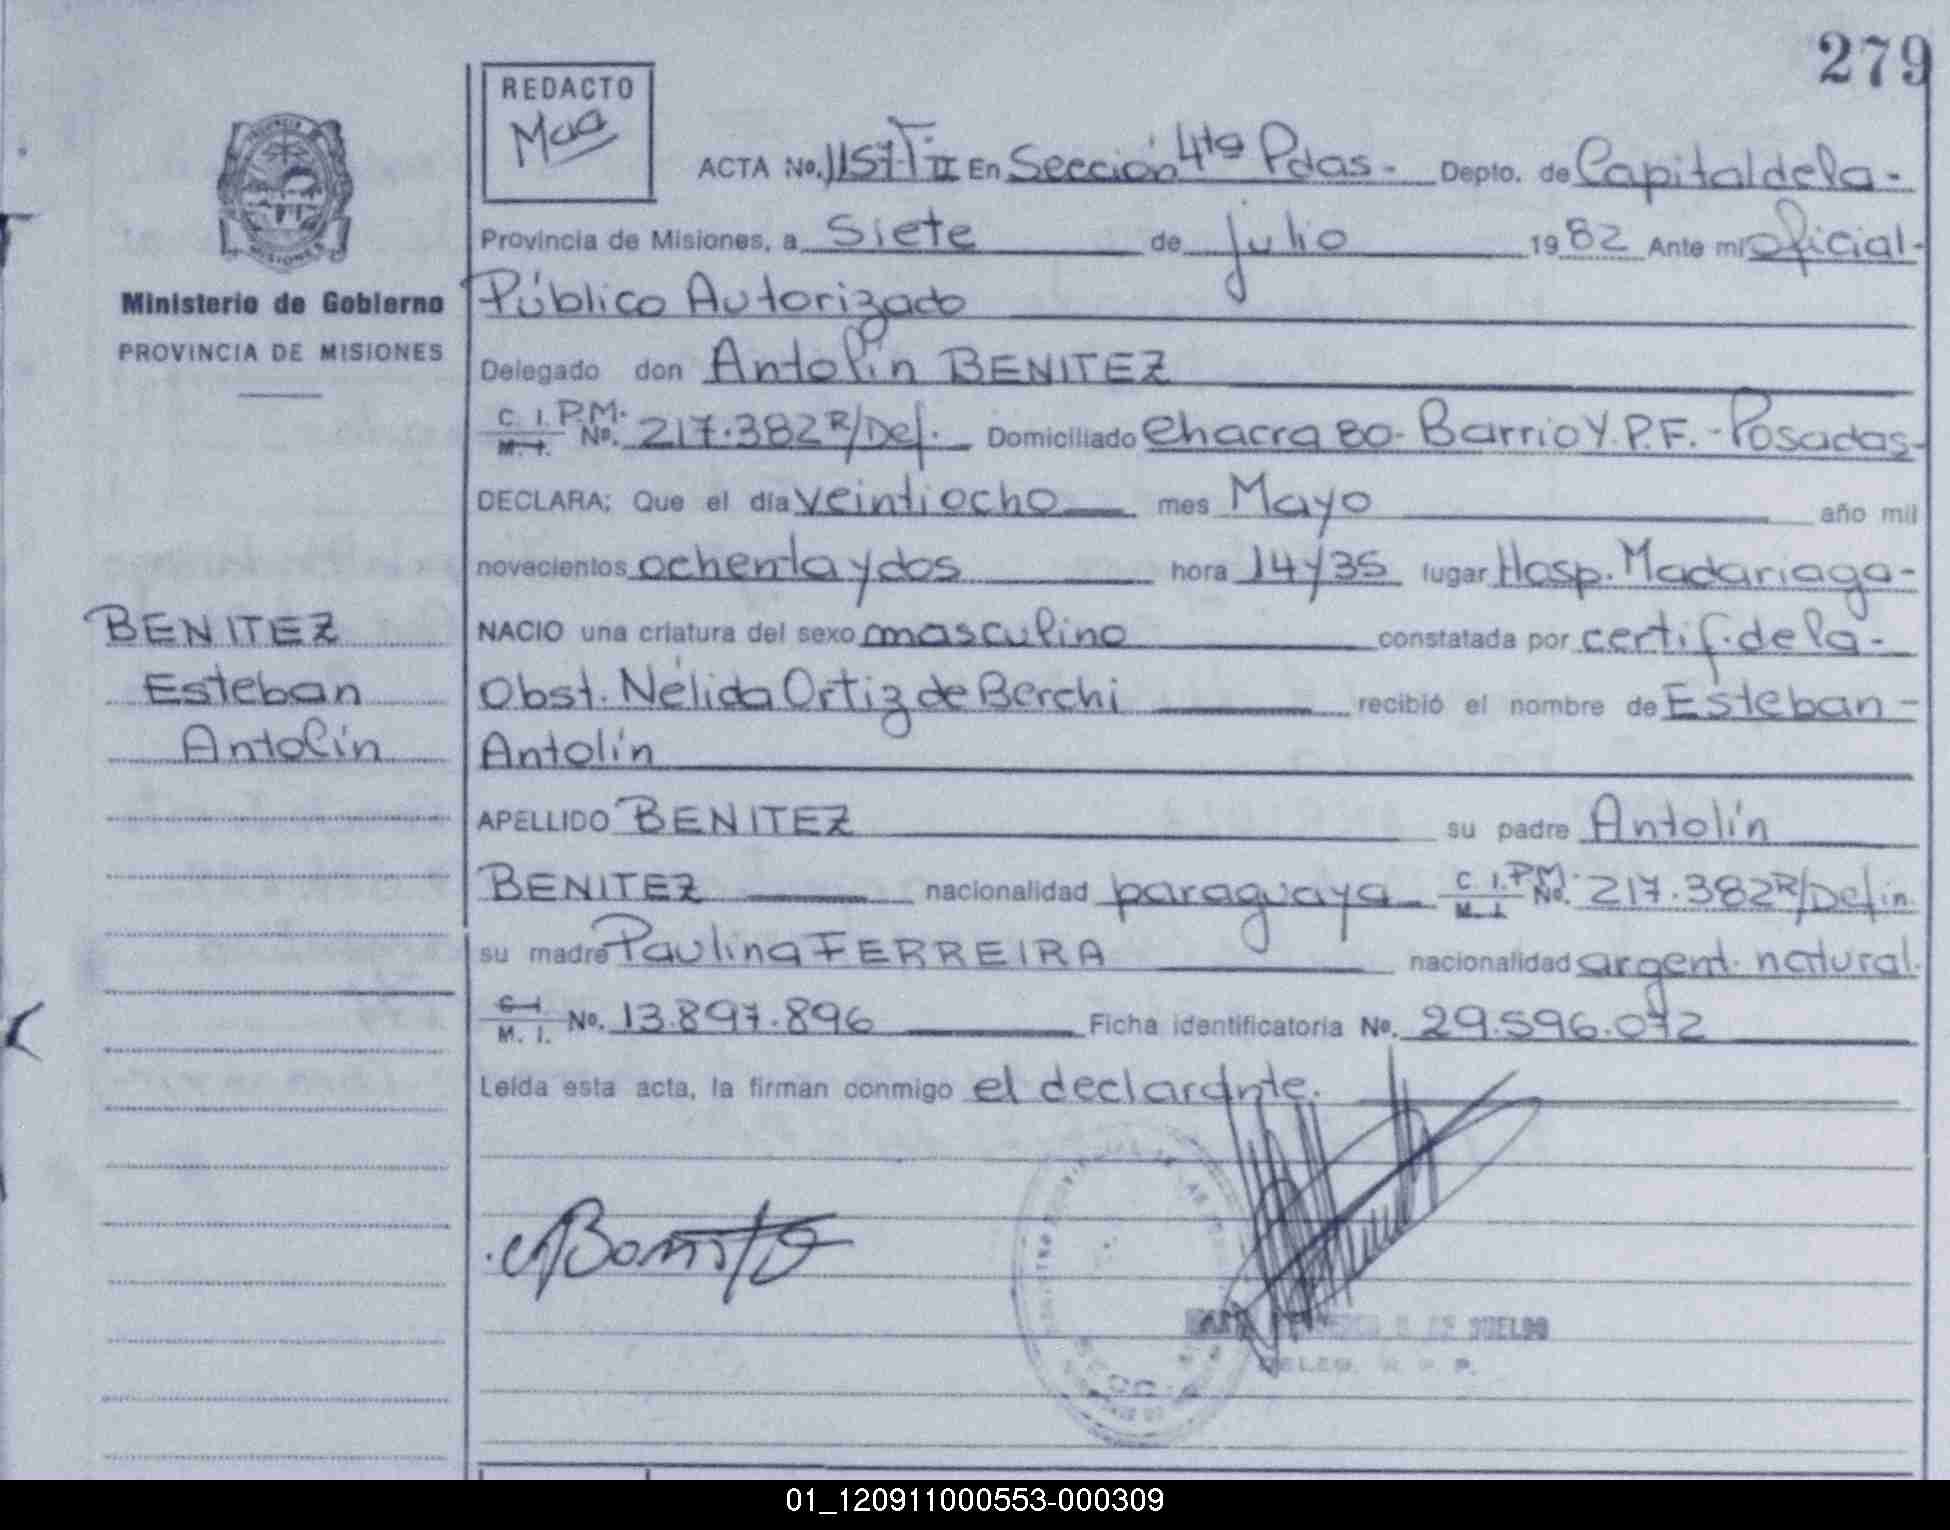 279
REDACTO
Maa
ACTA No. 1157-T II En Sección 4ta Pdas- Depto. de Capital de la-
Provincia de Misiones, a siete de julio 1982 Ante mi oficial-
Público Autorizado
Ministerio de Gobierno
PROVINCIA DE MISIONES
Delegado don Antolín BENITEZ
C. I. P.M. M. I. No. 217.382 R/Def. Domiciliado chacra 80- Barrio Y.P.F.-Posadas-
DECLARA: Que el día veintiocho mes Mayo año mil
novecientos ochenta y dos hora 14 y 35 lugar Hosp. Madariaga-
NACIO una criatura del sexo masculino constatada por certif. de la-
Obst. Nélida Ortiz de Berchi recibió el nombre de Esteban-
Antolín
BENITEZ
Esteban
Antolín
APELLIDO BENITEZ su padre Antolín
BENITEZ nacionalidad paraguaya C. I. P.M. M. I. No. 217.382 R/Defin.
su madre Paulina FERREIRA nacionalidad argent. natural.
C. I. M. I. No. 13.897.896 Ficha identificatoria No. 29.596.072
Leída esta acta, la firman conmigo el declarante.
DELEG. R. P. P.
01_120911000553-000309